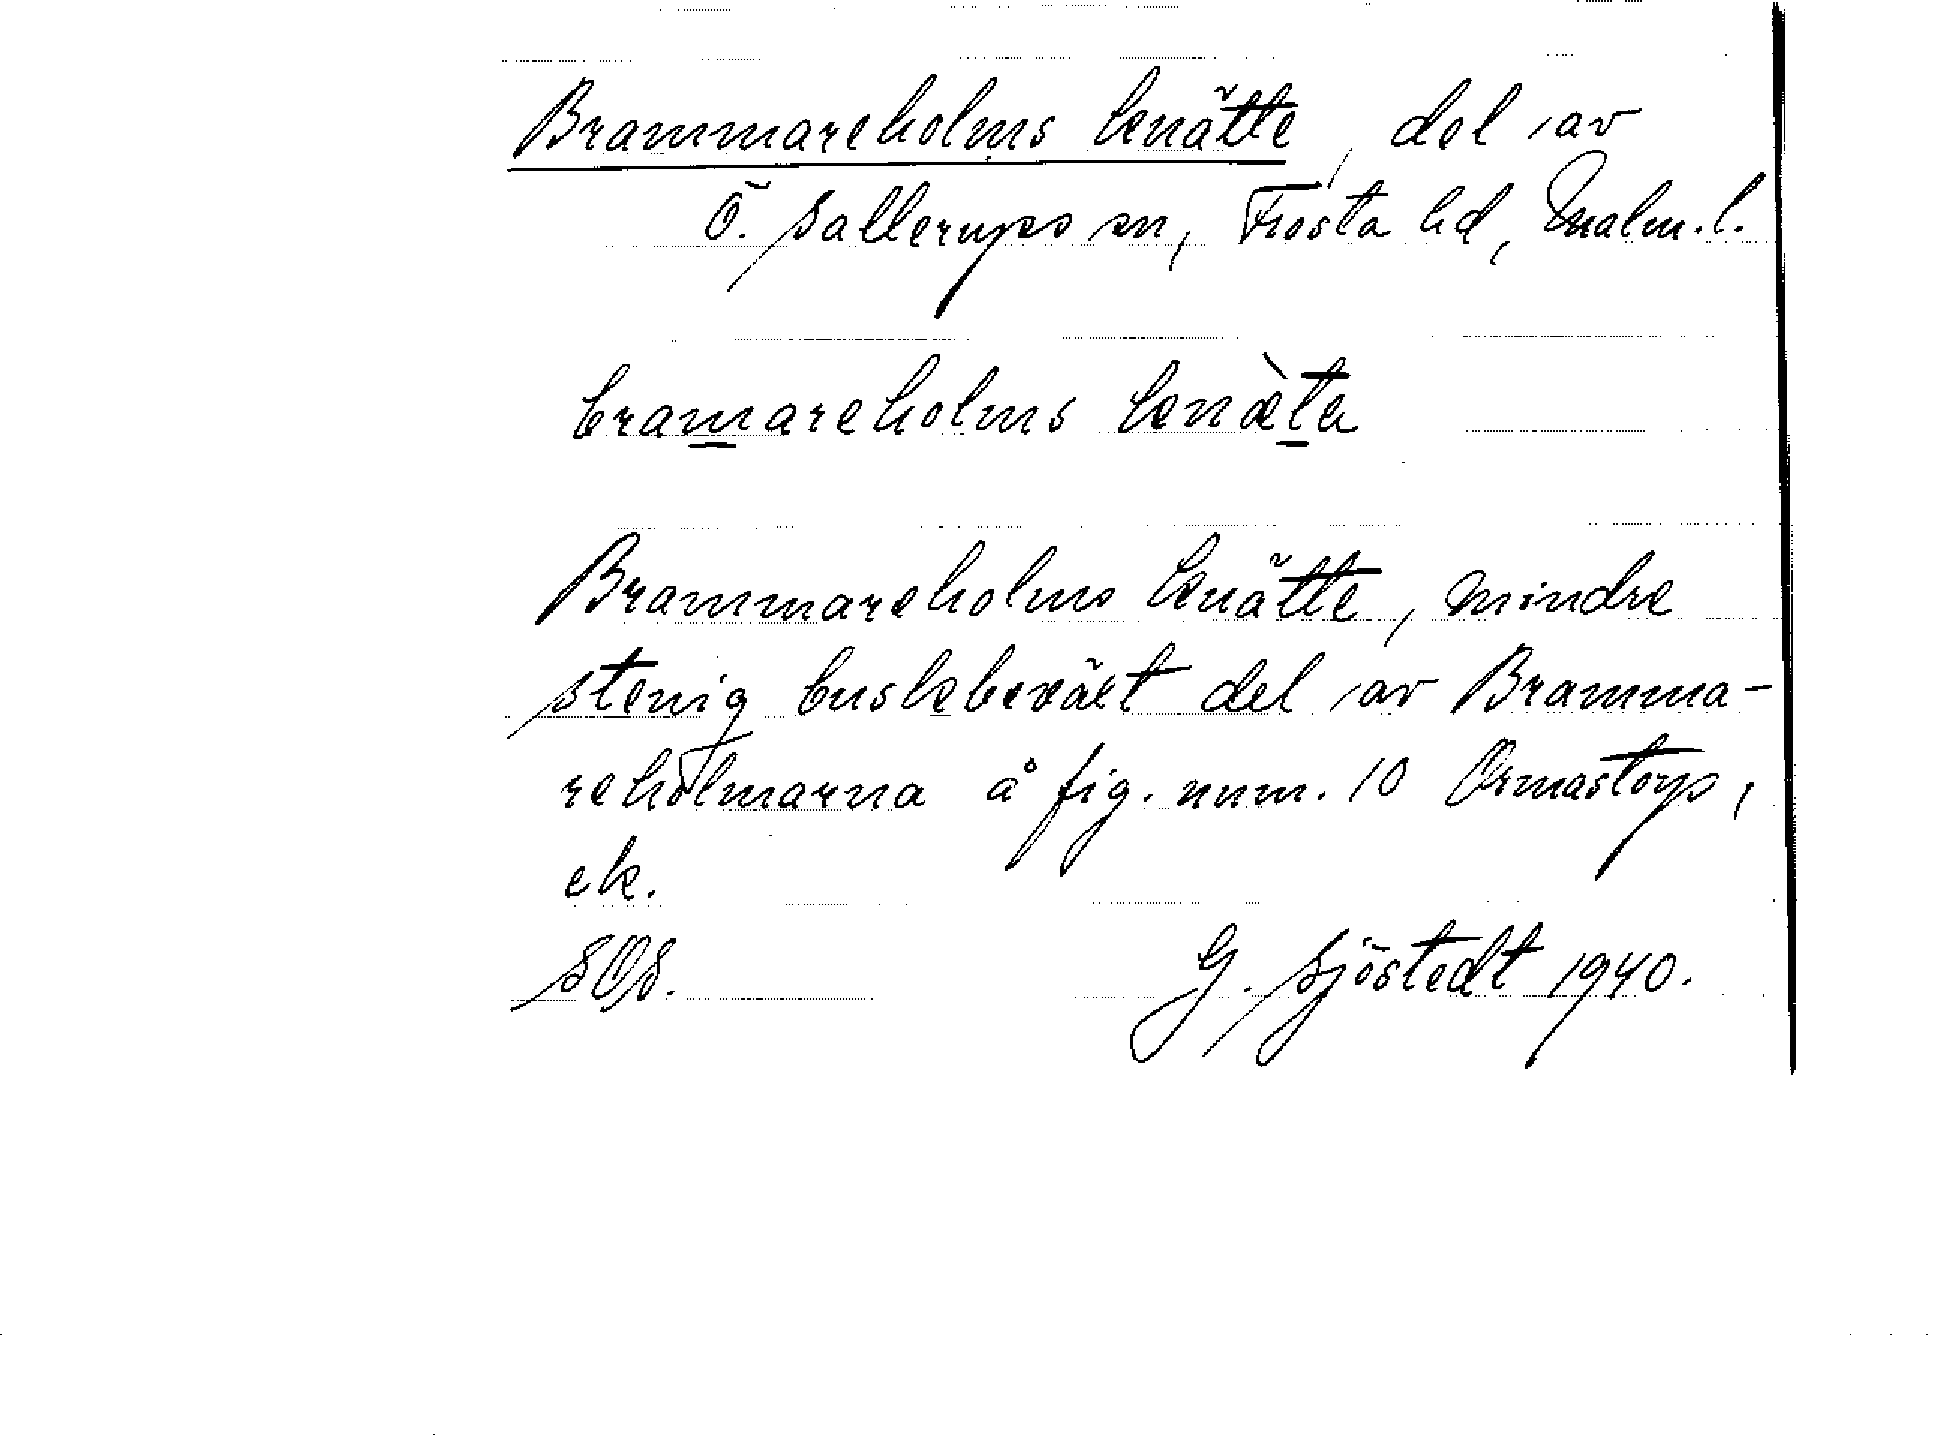 Brammareholms benätte, del av
Ö. Sallerups sn, Frosta hd, Malm. l.
bramareholms benæ̀te
Brammareholms benätte, mindre
stenig buskbeväxt del av Bramma-
reholmarna å fig. num. 10 Ormastorp,
ek.
SOS. G. Sjöstedt 1940.